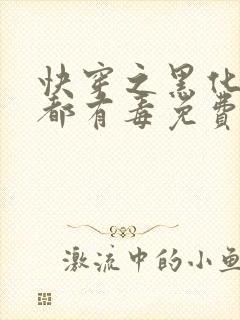 快穿之黑化
都有毒免费
激流中的小鱼